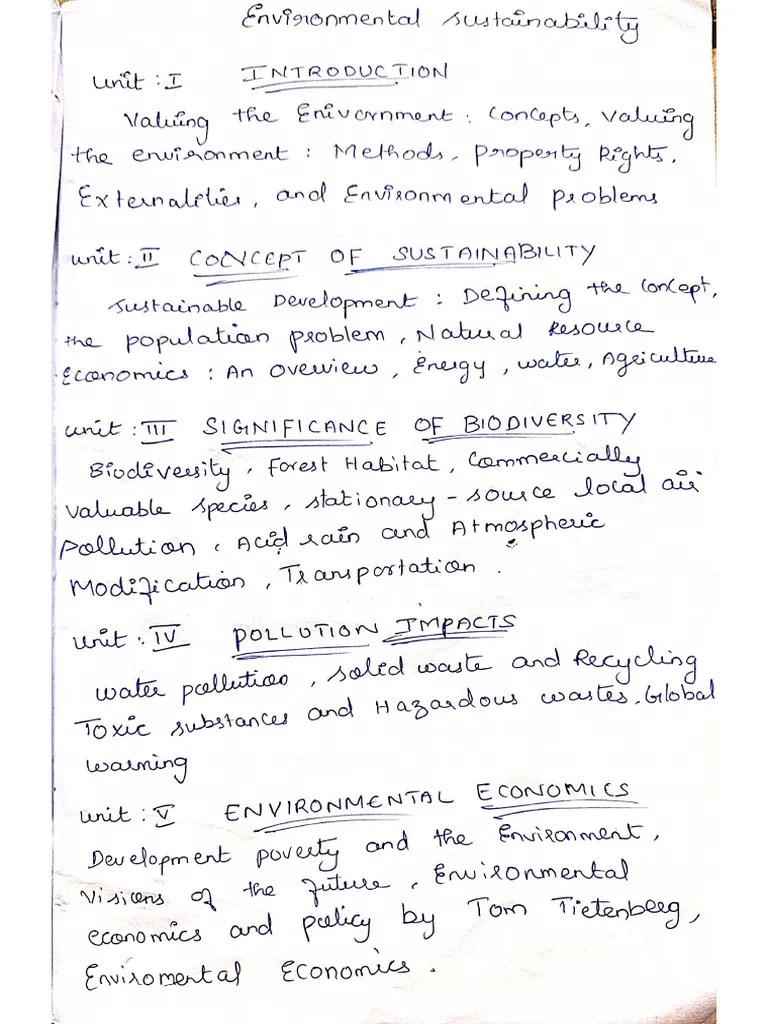 Environmental sustainability
unit : I INTRODUCTION
Valuing the Enivornment : Concepts, Valuing
the environment : Methods, property Rights,
Externalities, and Environmental problems
unit : II CONCEPT OF SUSTAINABILITY
sustainable Development : Defining the concept,
the population problem, Natural Resource
Economics : An overview, Energy, water, Agriculture
unit : III SIGNIFICANCE OF BIODIVERSITY
Biodiversity, Forest Habitat, Commercially
Valuable species, stationary - source local air
pollution, Acid rain and Atmospheric
Modification, Transportation .
unit : IV POLLUTION IMPACTS
water pollution, solid waste and Recycling
Toxic substances and Hazardous wastes, Global
warning
unit : V ENVIRONMENTAL ECONOMICS
Development poverty and the Environment,
Visions of the future, Environmental
economics and policy by Tom Tietenberg,
Enviromental Economics .